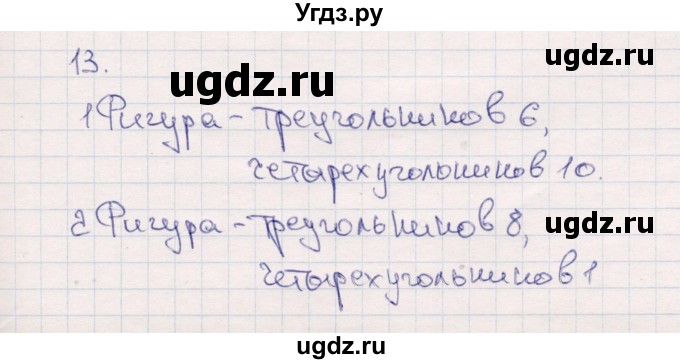 Угдз.ру
13.
ugdz.ru
1 Фигура - треугольников 6,
четырехугольников 10.
2 Фигура - треугольников 8,
ugdz.ru
четырехугольников 1
ugdz.ru